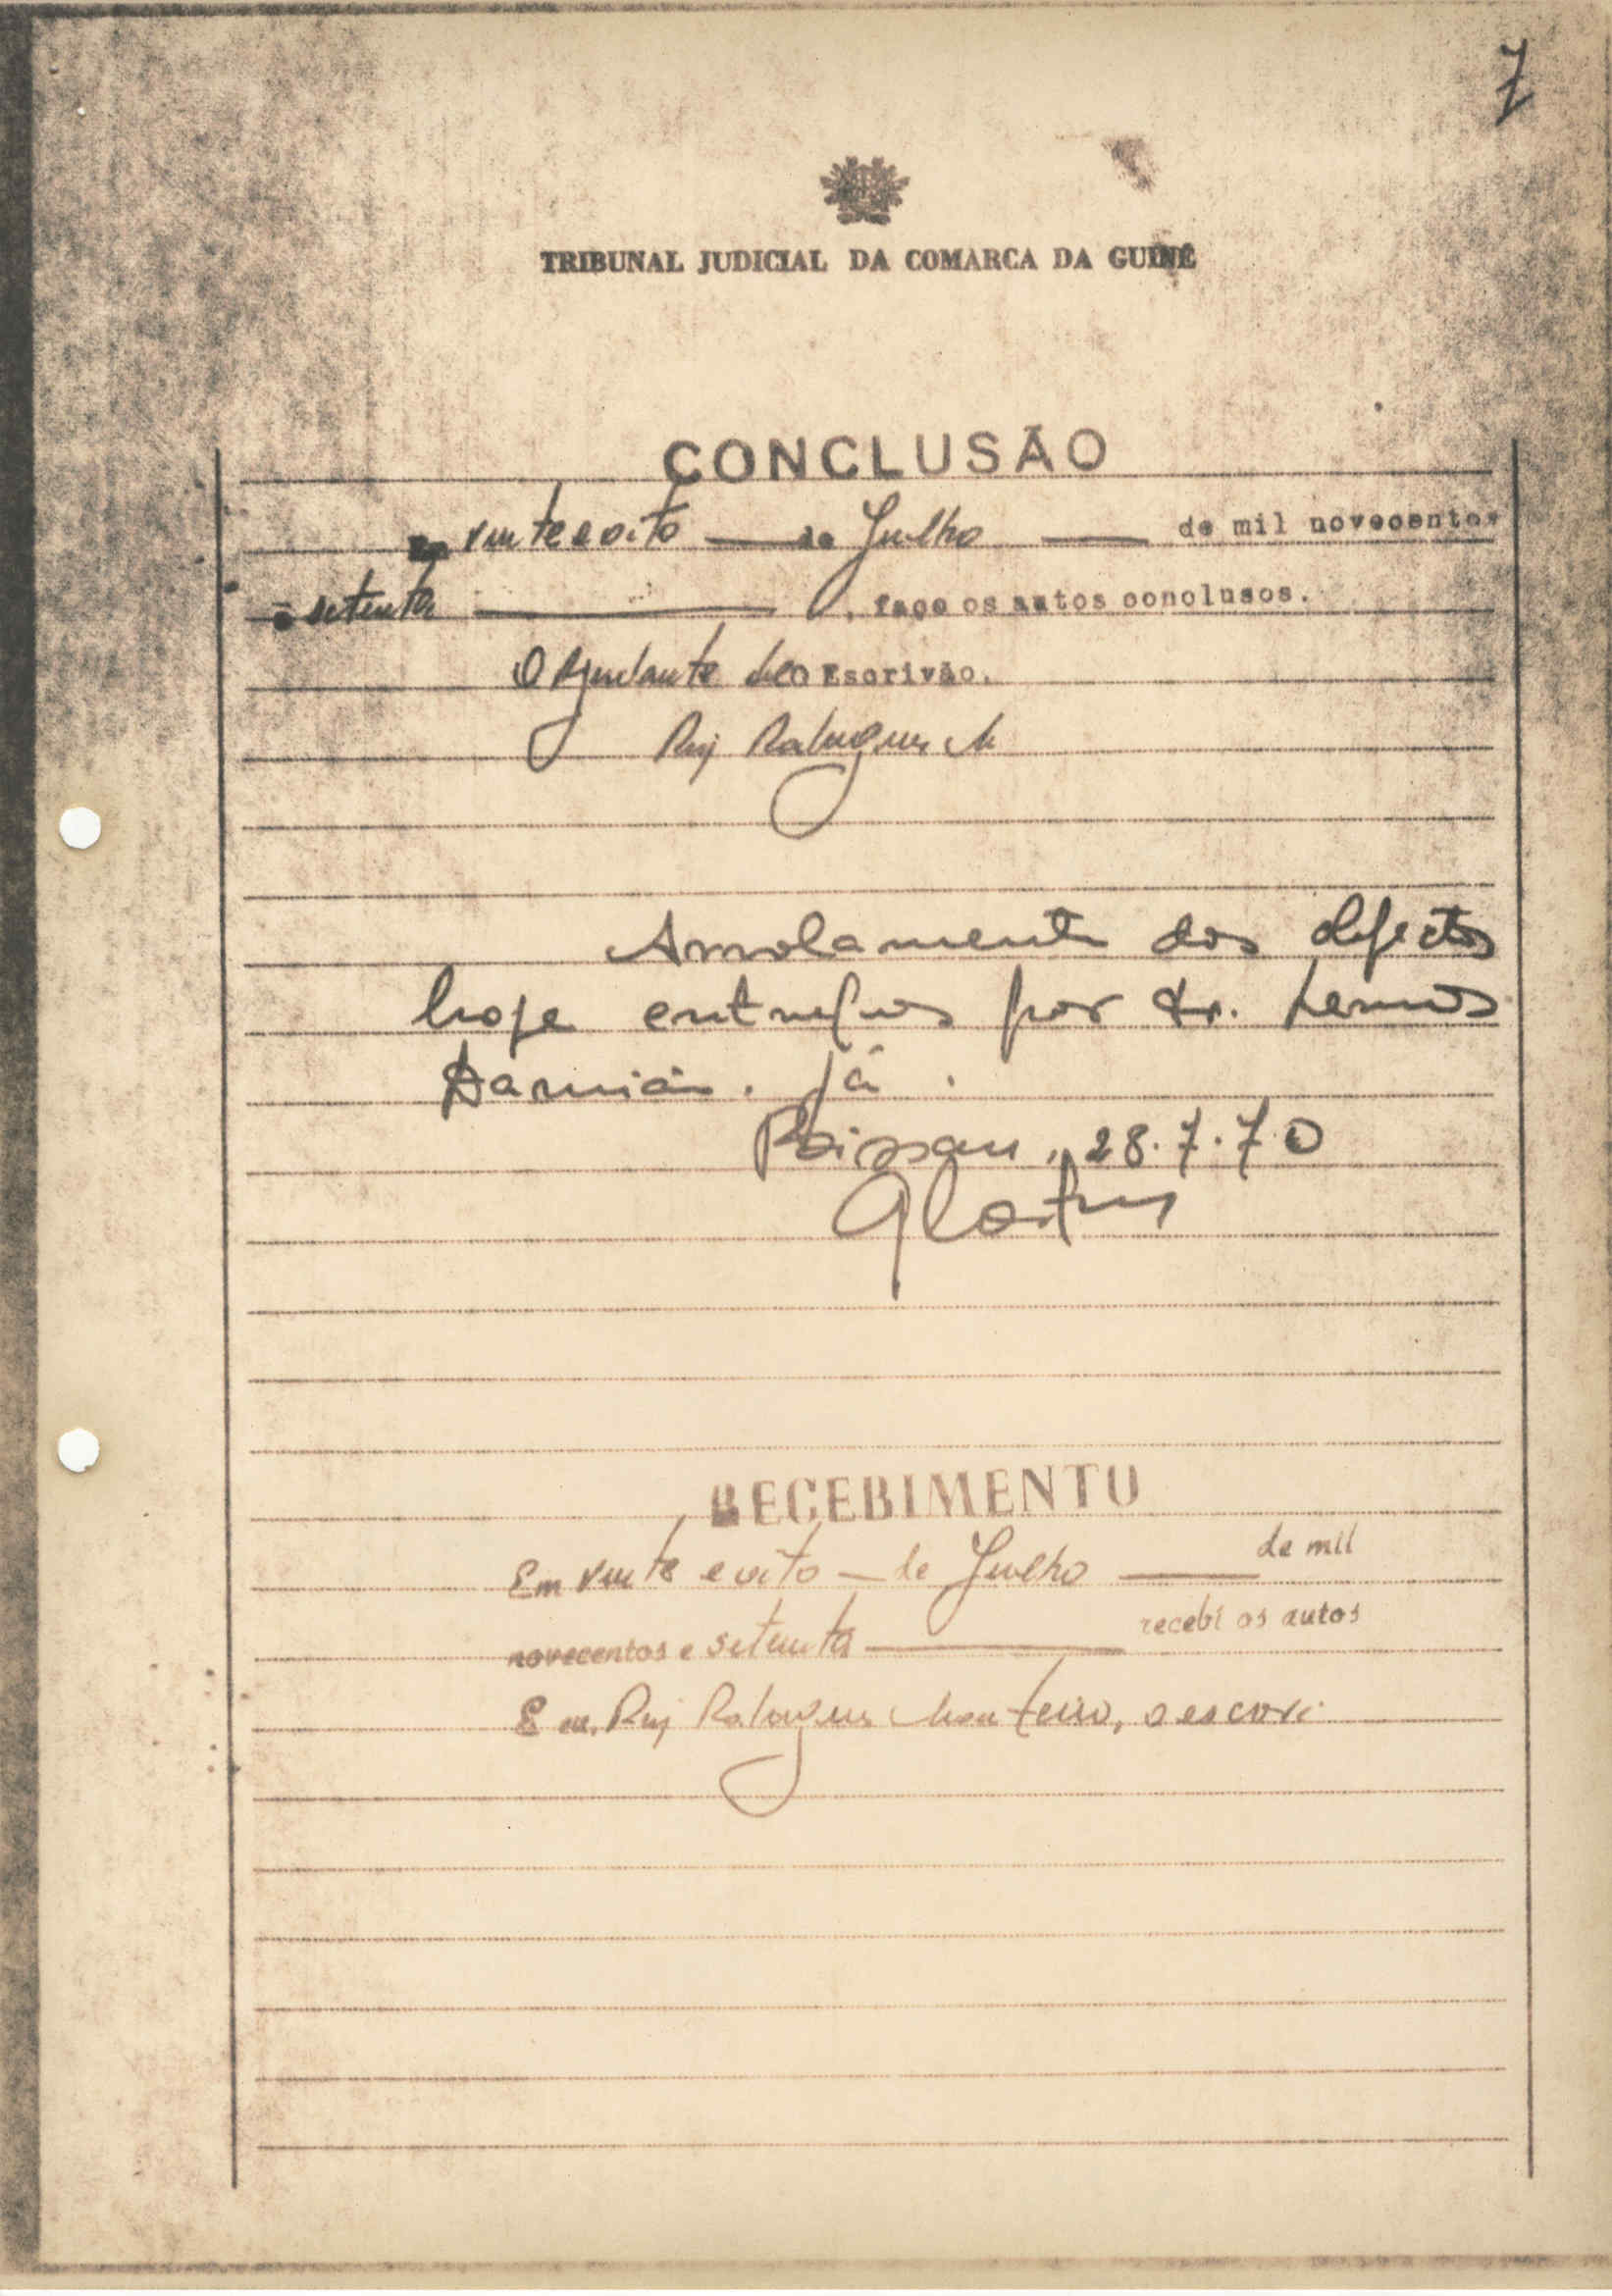 7
TRIBUNAL JUDICIAL DA COMARCA DA GUINÉ
CONCLUSÃO
Em vinte e oito de Julho de mil novecentos
e setenta, faço os autos conclusos.
O Ajudante do Escrivão,
Rui Rodrigues M
Arrolamento dos objectos
hoje entregues por dr. Lemos
Damião. Já.
Bissau, 28.7.70
RECEBIMENTO
Em vinte e oito de Julho de mil
novecentos e setenta recebi os autos
E eu, Rui Rodrigues Monteiro, o escrevi